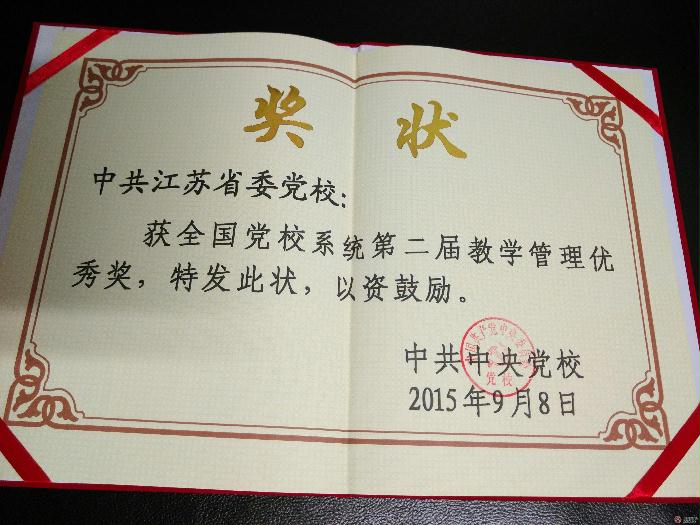 奖 状
中共江苏省委党校:
获全国党校系统第二届教学管理优
秀奖,特发此状,以资鼓励。
中共中央党校
2015年9月8日
党校